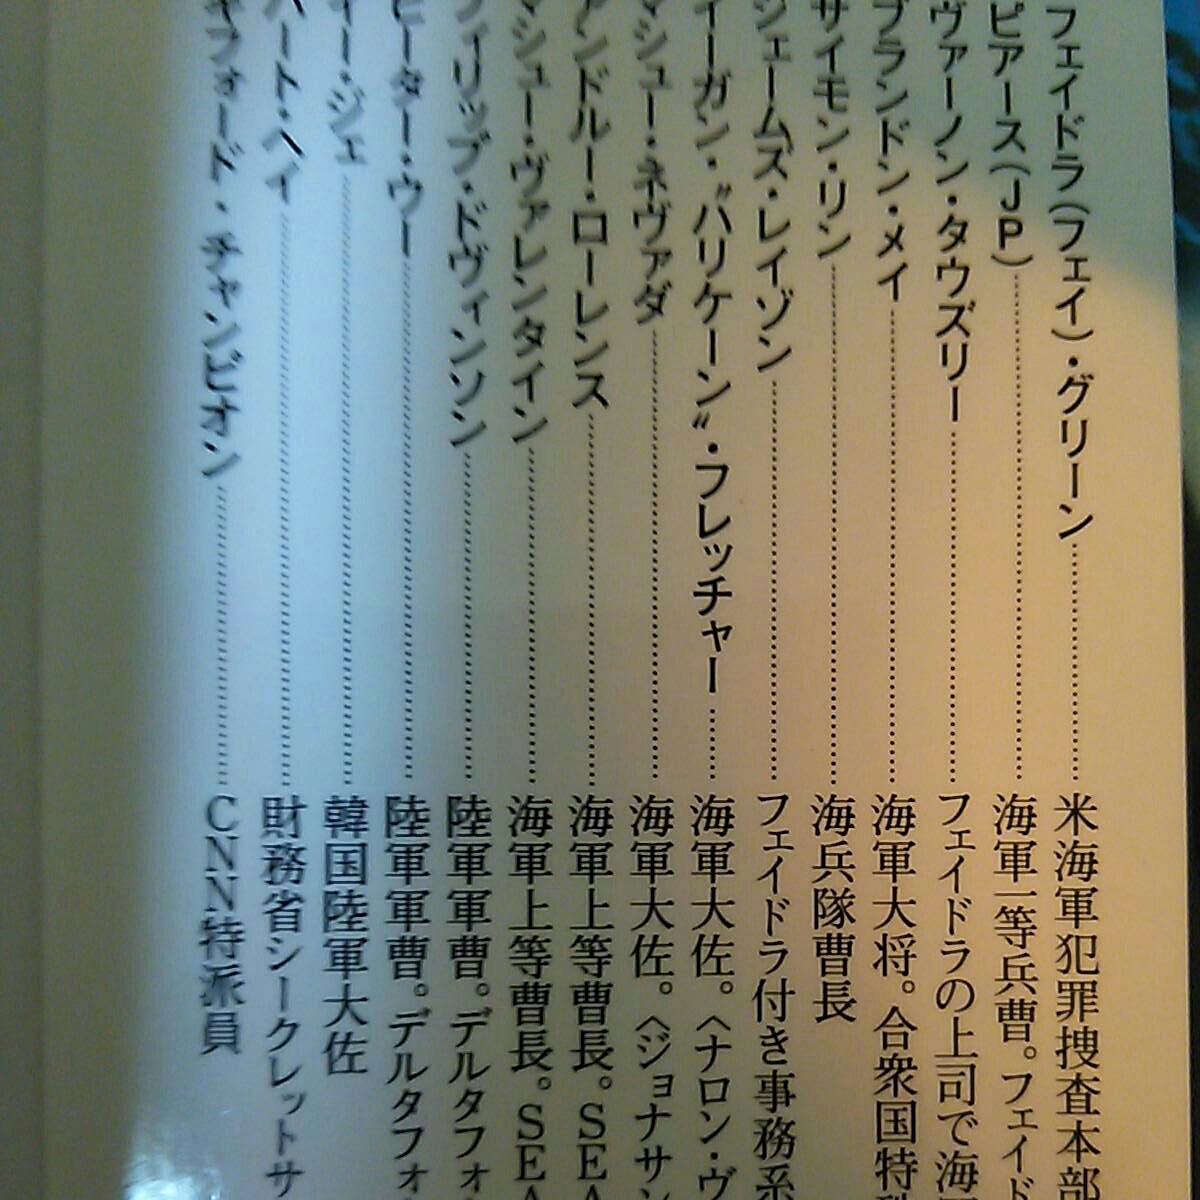 フェイドラ(フェイ)・グリーン……米海軍犯罪捜査本部
ピアース(JP)……海軍一等兵曹。フェイド
ヴァーノン・タウズリー……フェイドラの上司で海
ブランドン・メイ……海軍大将。合衆国特
サイモン・リン……海兵隊曹長
ジェームズ・レイゾン……フェイドラ付き事務系
イーガン・〝ハリケーン〟・フレッチャー……海軍大佐。〈ナロン・ヴ
マシュー・ネヴァダ……海軍大佐。〈ジョナサン
アンドルー・ローレンス……海軍上等曹長。SEA
マシュー・ヴァレンタイン……海軍上等曹長。SEA
フィリップ・ドヴィンソン……陸軍軍曹。デルタフォ
ピーター・ウー……陸軍軍曹。デルタフォ
イー・ジェ……韓国陸軍大佐
ハート・ヘイ……財務省シークレットサ
フォード・チャンピオン……CNN特派員